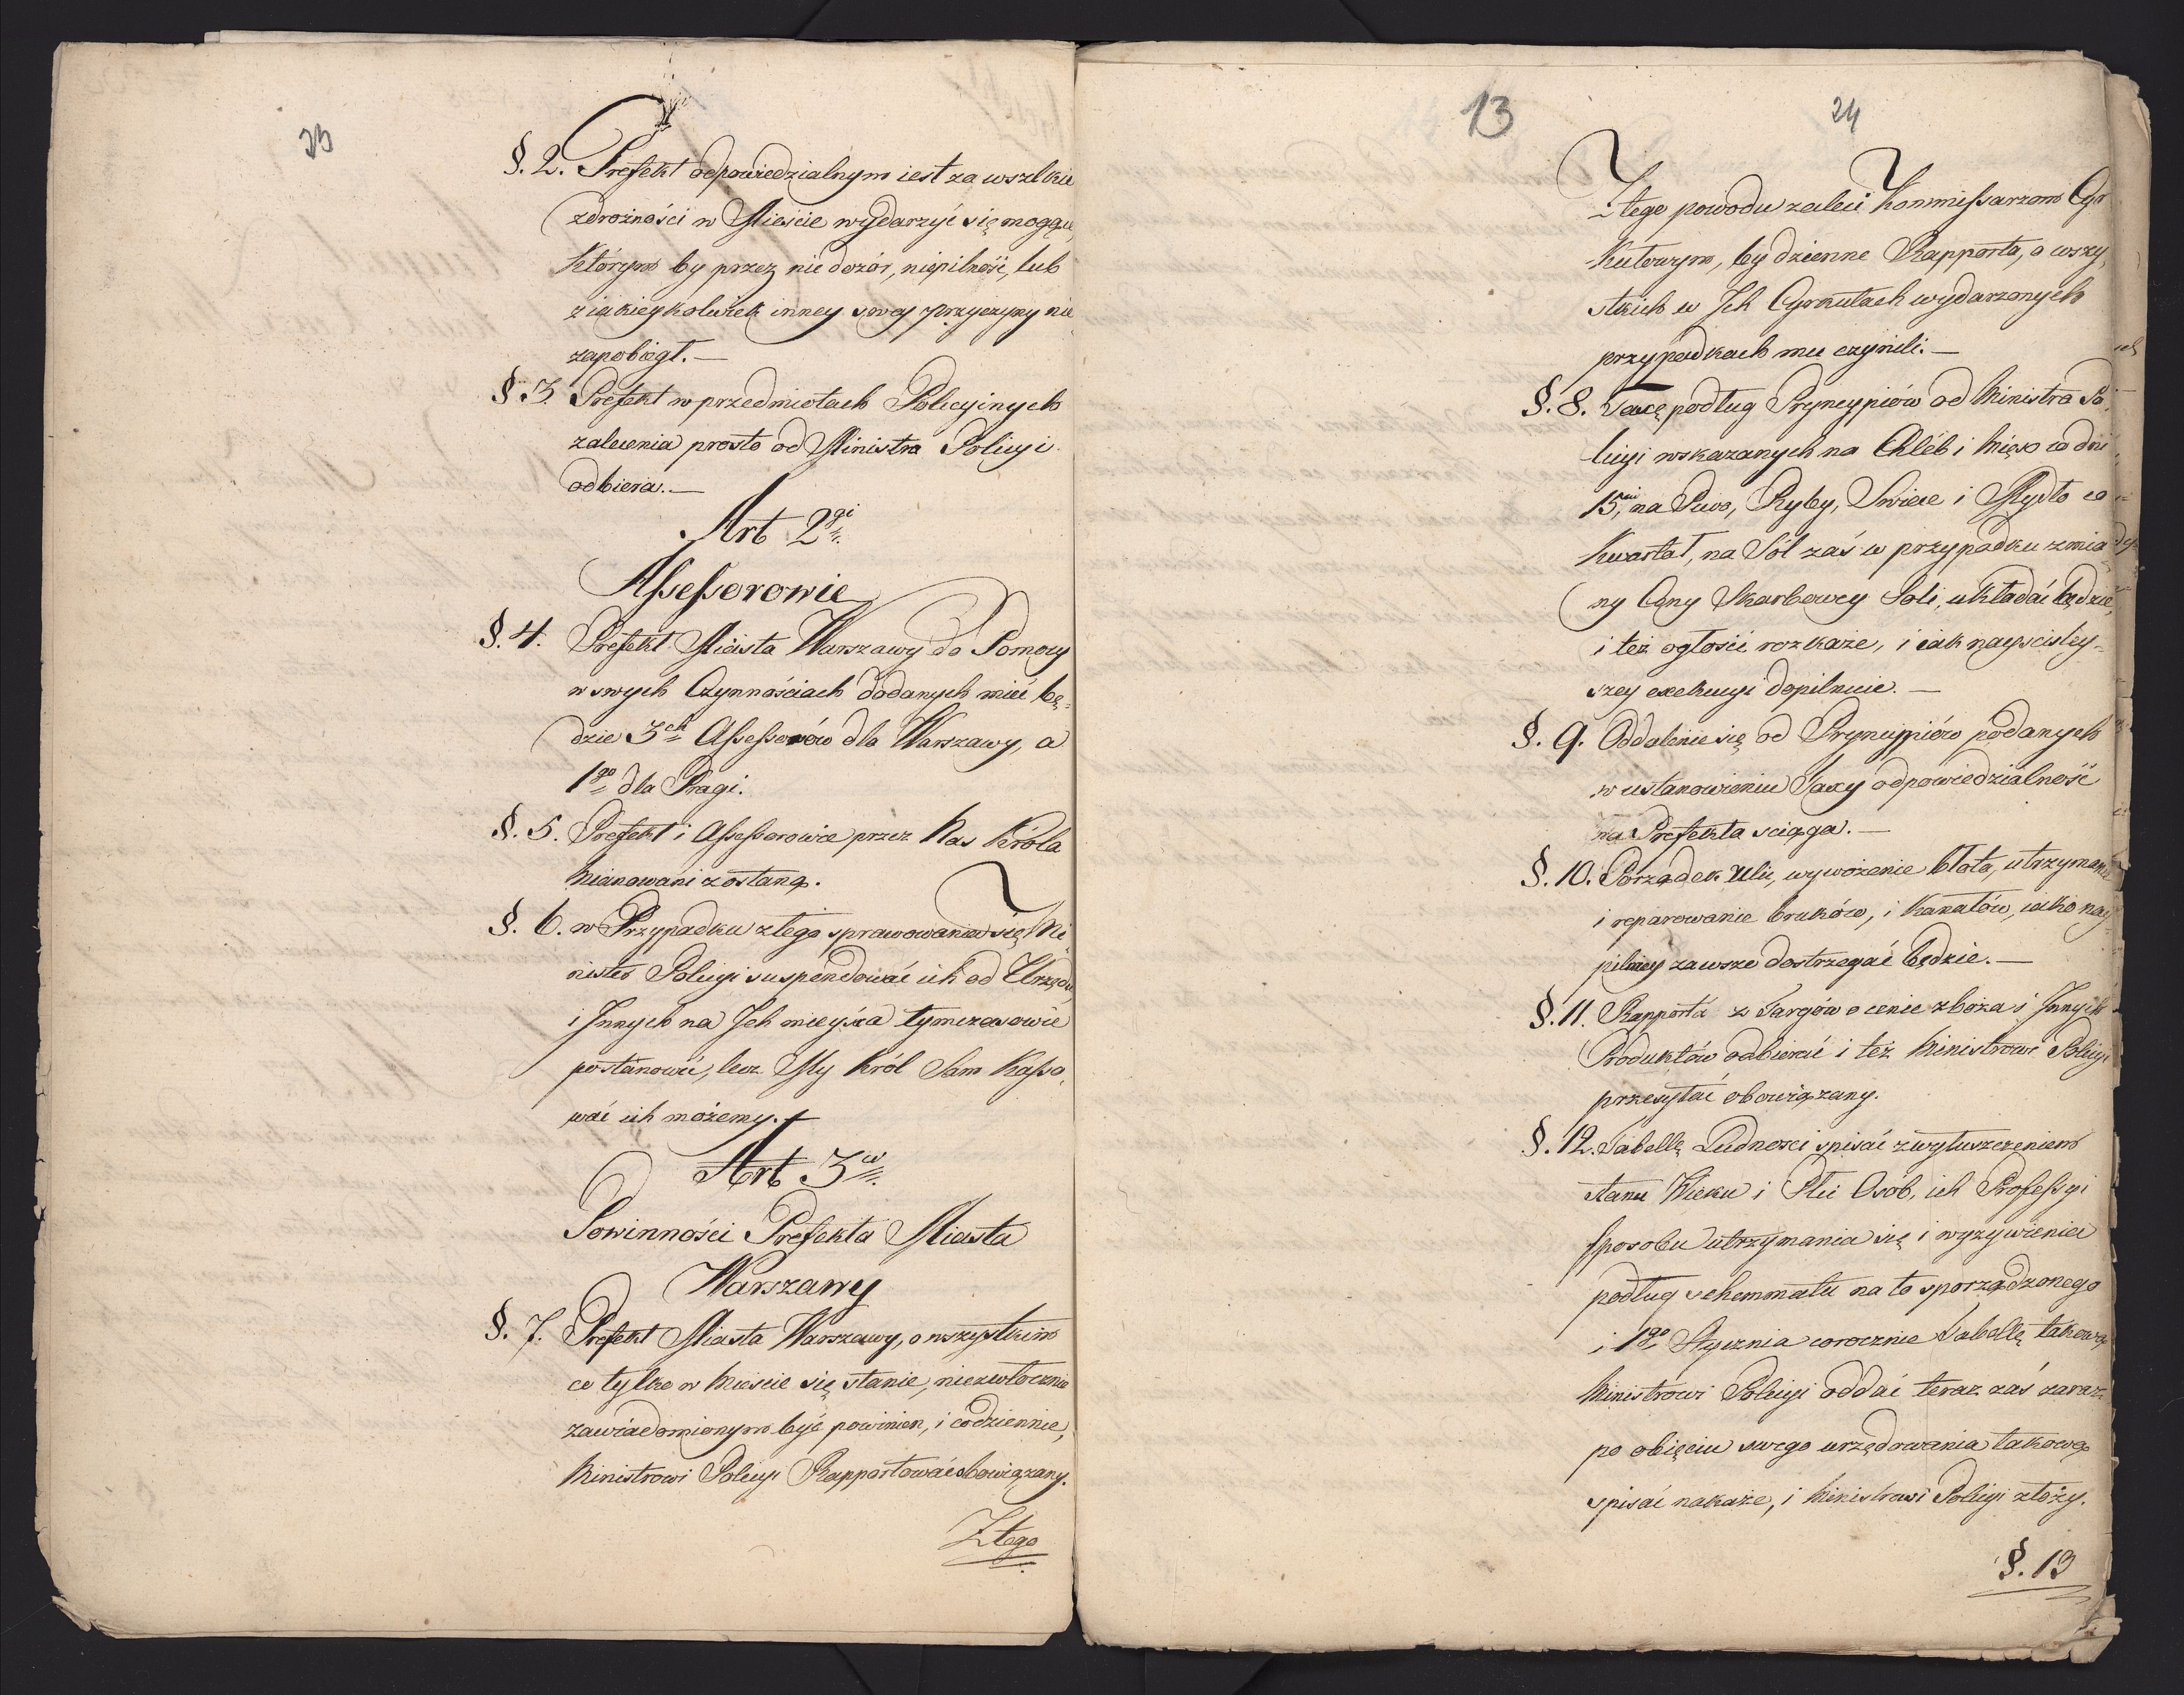 23
§. 2. Prefekt odpowiedzialnym iest za wszelkie
zdrożności w Mieście wydarzyć się mogące,
którym by przez nie dozór, niepilność, lub
z iakieykolwiek inney swey przyczyny nie
zapobiegł. —
§ 3. Prefekt w przedmiotach Policyinych
zalecenia prosto od Ministra Policyi
odbiera. —
Art 2gi
Assessorowie
§. 4. Prefekt Miasta Warszawy do Pomocy
w swych Czynnościach dodanych mieć bę,
dzie 3ch Assessorów dla Warszawy, a
1go dla Pragi.
§. 5. Prefekt i Assessorowie przez Nas Króla
Mianowani zostaną.
§. 6. w Przypadku złego sprawowania się Mi,
nister Policyi suspendować ich od Urzędu
i Innych na Ich mieysca tymczasowie
postanowić, lecz My Król Sam Kasso,
wać ich możemy. —
Art 3ci
Powinności Prefekta Miasta
Warszawy
§. 7. Prefekt Miasta Warszawy, o wszystkim
co tylko w Mieście się stanie, niezwłocznie
zawiadomionym być powinien, i codziennie,
Ministrowi Policyi Rapportować obowiązany.
Z tego
13
24
Z tego powodu zaleci Kommissarzom Cyr
kułowym, by dzienne Rapporta, o wszy,
stkich w Ich Cyrkułach wydarzonych
przypadkach mu czynili. —
§. 8. Taxę podług Pryncypiów od Ministra Po,
licyi wskazanych na Chléb i Mięso co dni
15, na Piwo, Ryby, Swiece i Mydło co
Kwartał, na Sól zaś w przypadku zmia
ny Ceny Skarbowey Soli, układać będzie,
i też ogłosić rozkaże, i iak nayściśley-
szey exekucyi dopilnuie. —
§. 9. Oddalenie się od Pryncypiów podanych
w ustanowieniu Taxy odpowiedzialność
na Prefekta sciąga. —
§. 10. Porządek Ulic, wywożenie błota, utrzymanie
i reparowanie bruków, i Kanałów, iako nay-
pilniey zawsze dostrzegać będzie. —
§. 11. Rapporta z Targów o cenie zboża i Innych
Produktów odbierać i też Ministrowi Policyi
przesyłać obowiązany.
§. 12. Tabellę Ludności spisać z wyłuszczeniem
stanu Wieku i Płci Osób, ich Professyi
sposobu utrzymania się i wyżywienia
podług schemmatu na to sporządzonego
i 1go Stycznia corocznie Tabellę takową
Ministrowi Policyi oddać teraz zaś zaraz
po obięciu swego urzędowania takową
spisać nakaże, i Ministrowi Policyi złoży.
§. 13